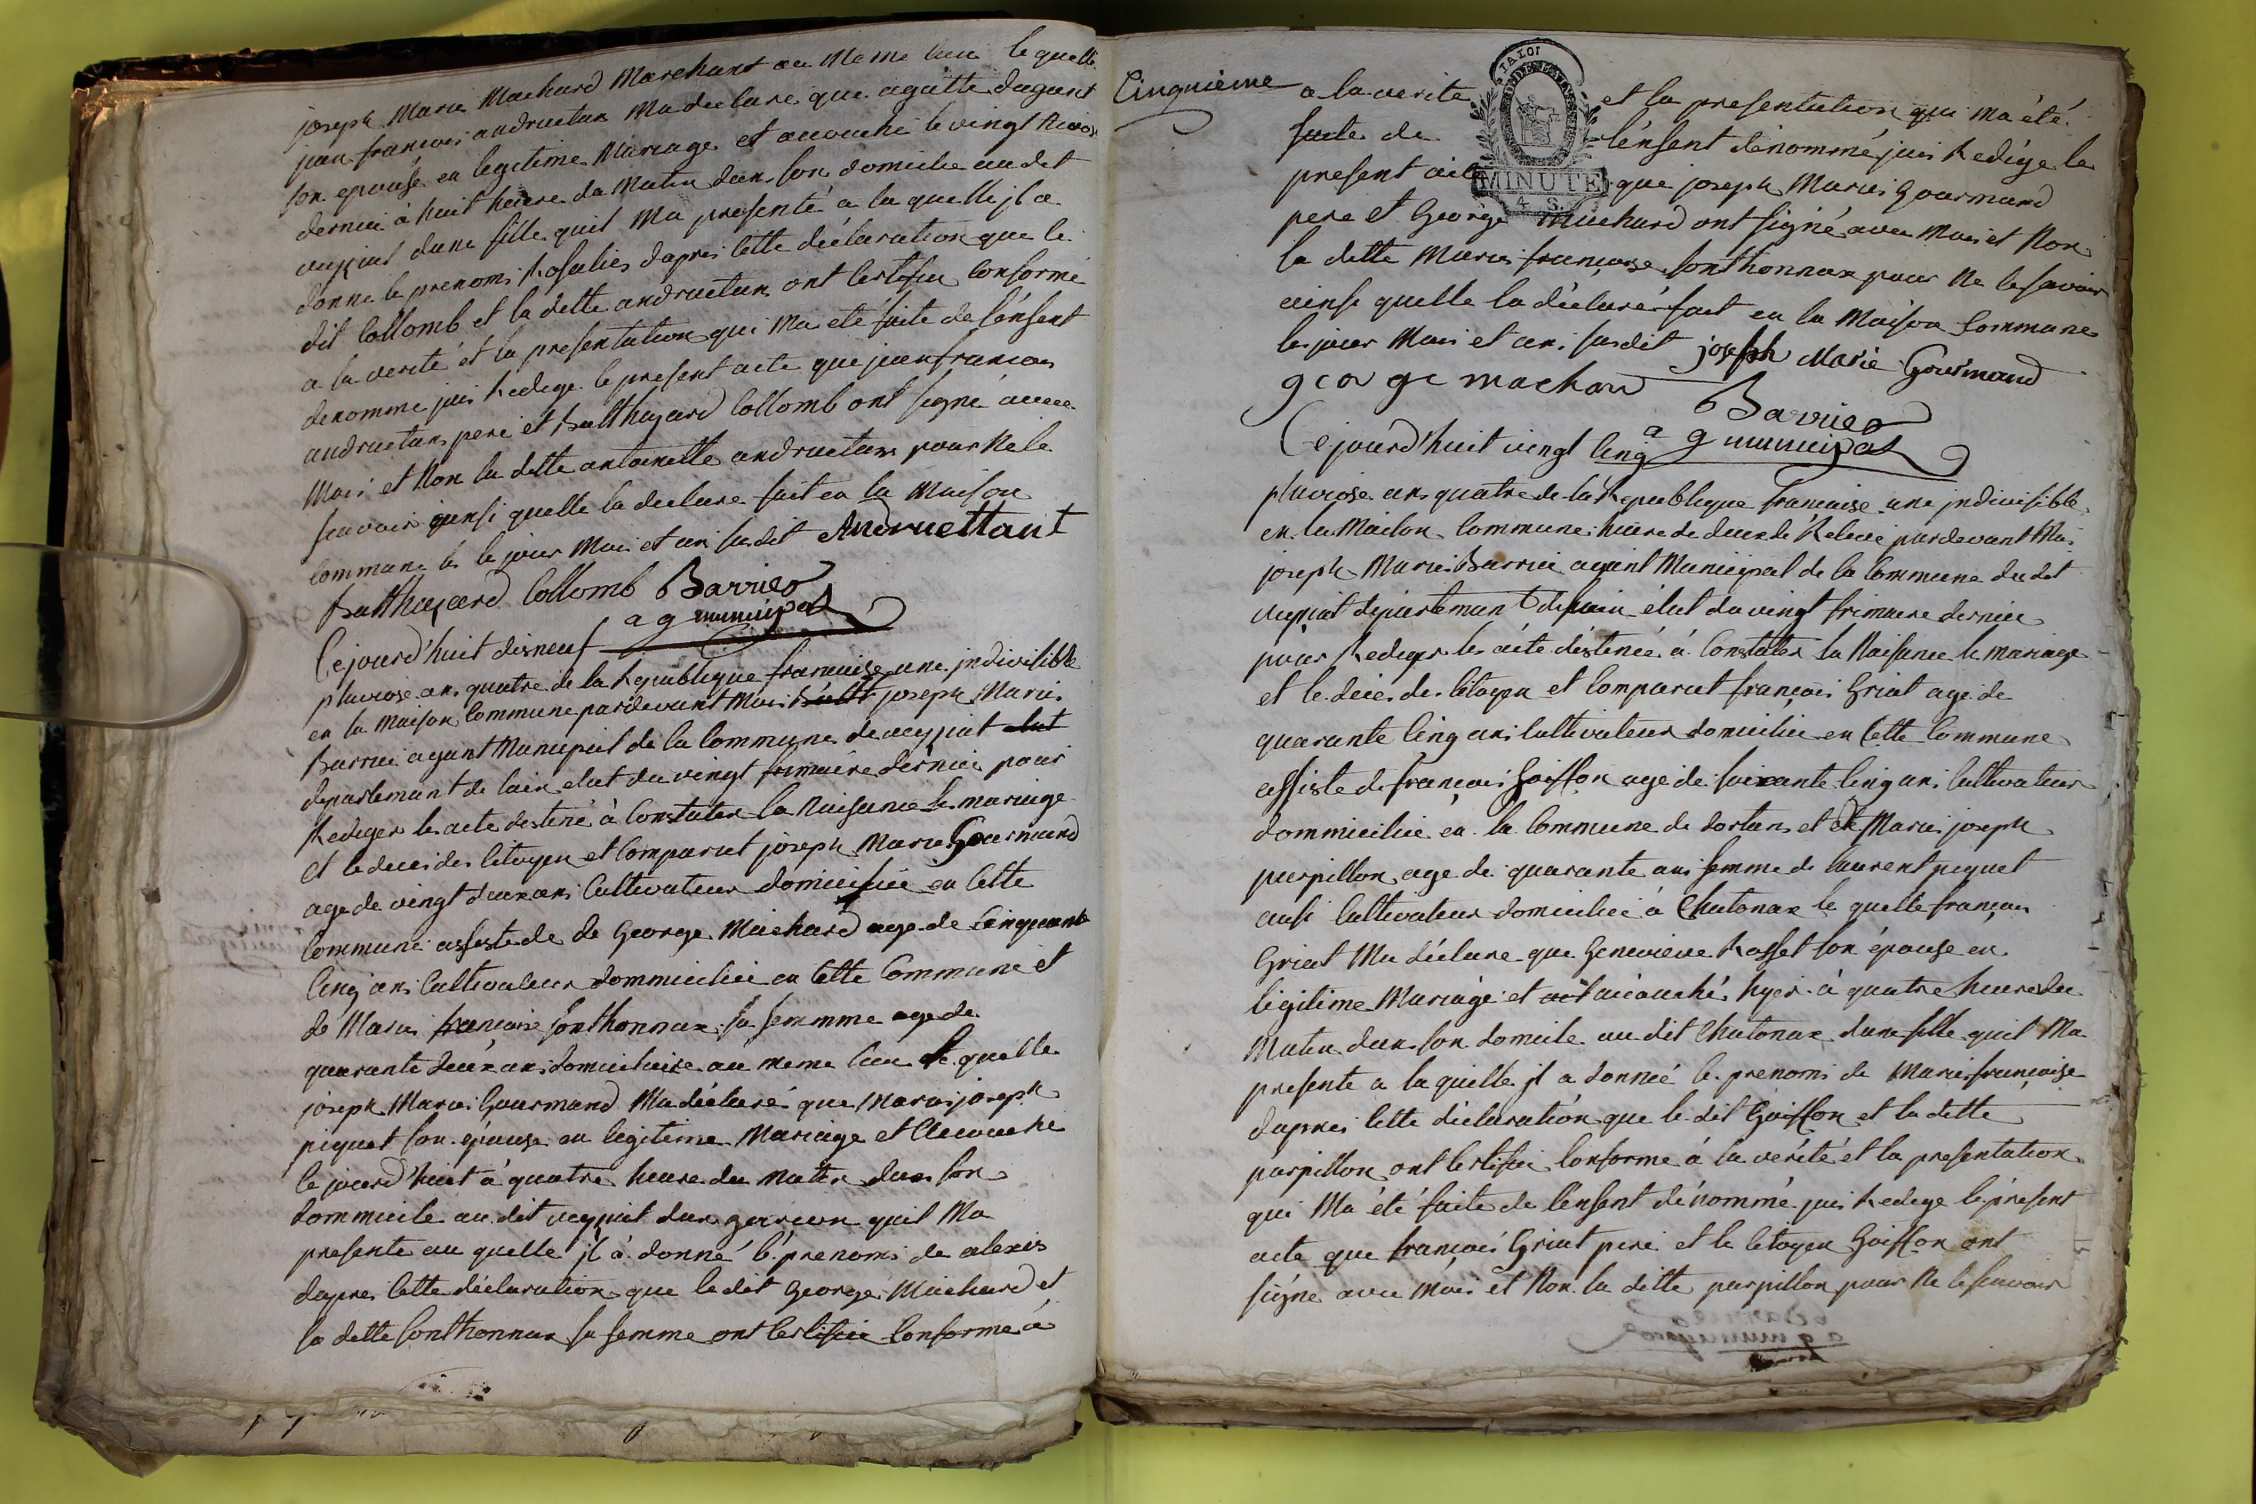 joseph Marie Machard Marchant au Meme lieu le quelle
jean francois andruetan Ma declare que agatte dugant
son epouse en legitime Mariage et accouché le vingt Nivos
dernier à huit heure du Matin dans son domicile audit
veyziat dune fille quil Ma presenté a la quelle jl a
donne le prenoms Rosalies dapres cette déclaration que le
dit Collomb et la ditte andruetan ont certifier conforme
a la verité et la presentation qui Ma eté faite de lénfent
denomme jais Redige le present acte que jean francois
andruetan pere et Balthazard Collomb ont signe avec
Mois et Non la ditte antoinette andruetan pour Ne le
scavoir ainsi quelle la declare fait en la Maison
commune les le jour Mois et an susdit Andruettant
Balthazard Collomb Barrier
a g municipal
Cejourd'huit disneuf
pluviose an quatre de la Republique francaise une jndivisible
en la Maison Commune pardevant Mois joseph Marie
Barrier agant Municipal de la Commune de veyziat
departemant de lain elut du vingt frimaire dernier pour
Rediger les acte destiné à Constater la Naisance le mariage
et le deces des Citoyen et Comparut joseph Marie Gourmand
age de vingt deux ans Cultivateur domicilié en Cette
Commune assiste de de George Machard age de Cinquante
Cinq ans Cultivateur dommicilié en Cette Commune et
de Marie francoise sonthonnax sa femmme age de
quarante deux ans domiciliaire au meme lieu le quelle
joseph Marie Gourmand Ma déclaré que Marie joseph
piquet son épouse en legitime Mariage et Accouche
le jourd'huit à quatre heure du Matin dans son
dommicile au dit veyziat dun garcon quil Ma
presente au quelle jl à donné le prenoms de alexis
dapres Cette déclaration que le dit George Machard et
la ditte Sonthonnax sa femme ont Certifier Conforme à
Cinquième
a la verite et la presentation qui Ma été
faite de lénfent dénommé jais Redige le
present acte que joseph Marie Gourmand
pere et George Machard ont signé avec Mois et Non
la ditte Marie francoise sonthonnax pour Ne le savoir
ainsi quelle la déclaré fait en la Maison Commune
les jour Mois et an susdit joseph Marie Gourmand
george machard Barrier
a g municipal
Cejourd'huit vingt Cinq
pluviose an quatre de la Republique francaise une jndivisible
en la Maison Commune heure de deux de Relevé pardevant Mois
joseph Marie Barrier agant Municipal de la Commune du dit
veyziat départemant de lain élut du vingt frimaire dernier
pour Rediger les acte destinée à Constater la Naisance le mariage
et le deces des Citoyen et Comparut francois Griat age de
quarante Cinq ans Cultivateur domicilié en Cette Commune
assiste de francois Goiffon age de soixante Cinq ans Cultivateur
dommicilié en la Commune de dortan et de Marie joseph
parpillon age de quarante ans femme de laurent piquet
ausi Cultivateur domicilié à Chatonax le quelle francois
Griat Ma déclare que Genevieve Rosset son épouse en
légitime Mariage et accouché hyer à quatre heure du
Matin dans son domicile au dit Chatonax dune fille quil Ma
presente a la quelle jl a donnée le prenoms de Marie francoise
dapres Cette déclaration que le dit Goiffon et la ditte
parpillon ont Certifier Conforme à la vérité et la presentation
qui Ma été faite de lénfent dénommé jais Redige le présent
acte que francois Griat pere et le Citoyen Goiffon ont
signé avec Mois et Non la ditte parpillon pour Ne le scavoir
LA LOI
MINUTE
4 S.